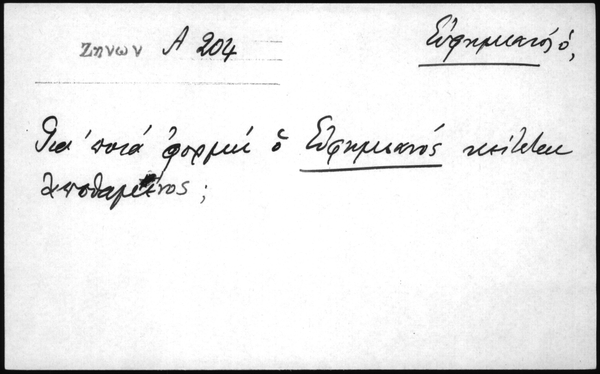 Ζηνων Α 204
Εὐφημιανός ὁ,
Για 'ποιά ἀφορμή ὁ Εὐφημιανός κοίτεται
ἀποθαμένος;